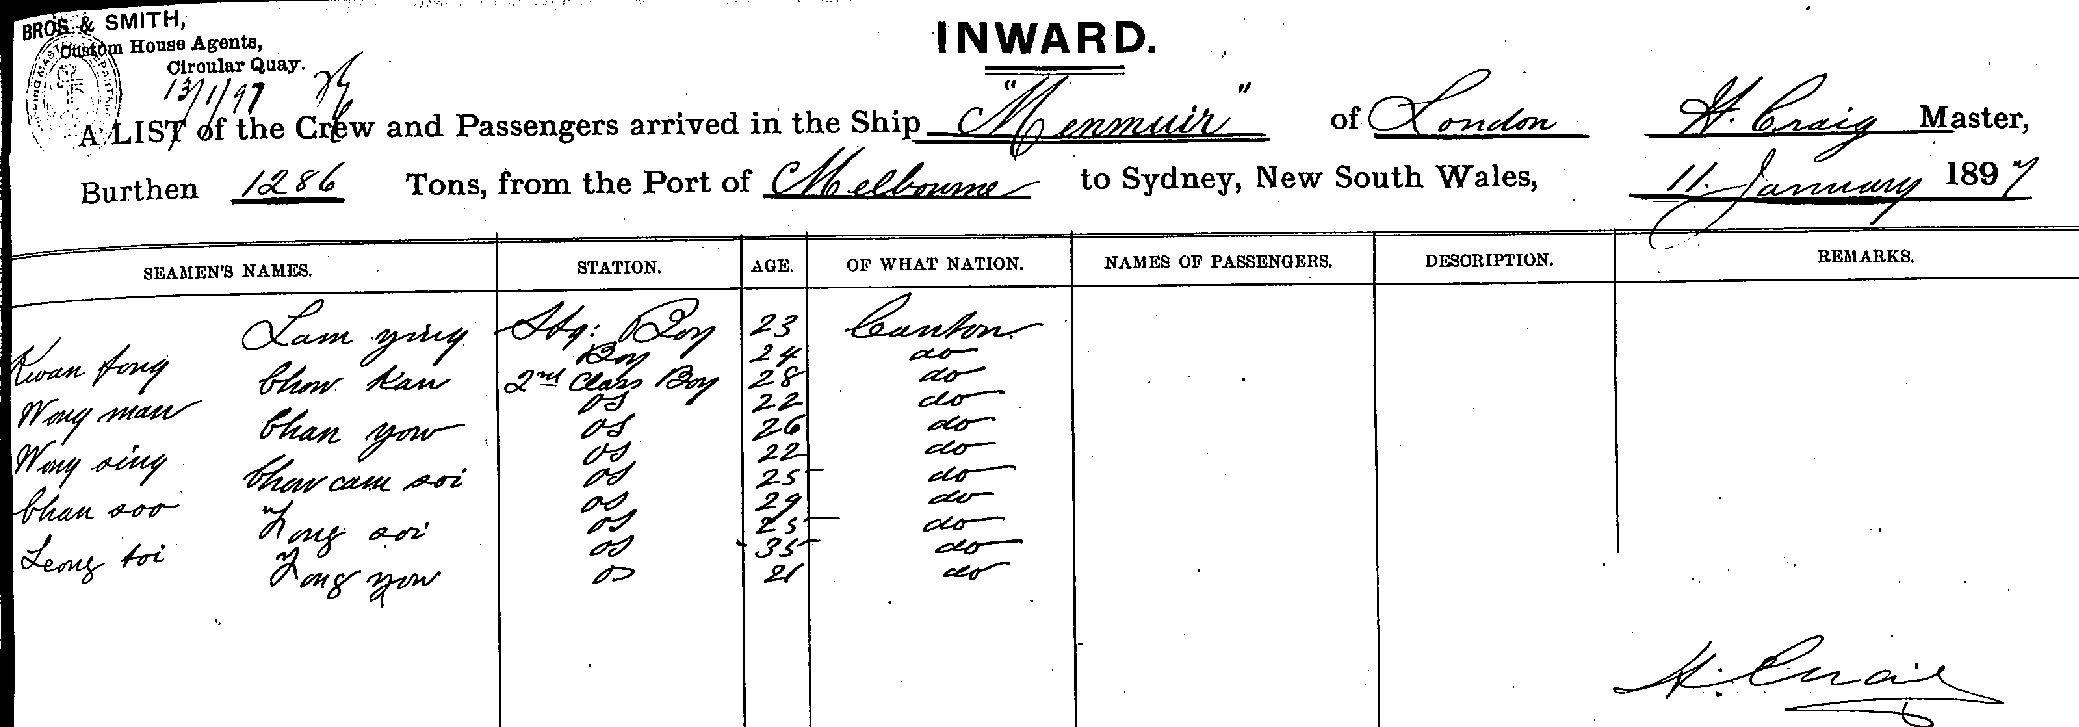 BROS. & SMITH,
Custom House Agents,
Circular Quay.
13/1/97
INWARD.
A LIST of the Crew and Passengers arrived in the Ship "Menmuir" of London H. Craig Master,
Burthen 1286 Tons, from the Port of Melbourne to Sydney, New South Wales, 11 January 1897
SEAMEN'S NAMES. STATION. AGE. OF WHAT NATION. NAMES OF PASSENGERS. DESCRIPTION. REMARKS.
Lam ying Stg: Boy 23 Canton
Kwan fong Boy 24 do
Chow Kau 2nd Class Boy 28 do
Wong man os 22 do
Chan yow os 26 do
Wong sing os 22 do
Chow cam soi os 25 do
Chan soo os 29 do
Fong soi os 25 do
Leong toi os 35 do
Fong yow os 21 do
H. Craig